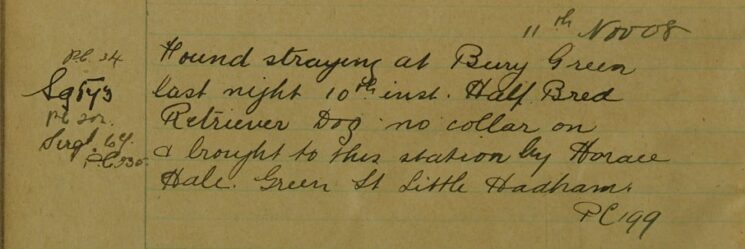 11th Nov 08
Found straying at Bury Green
last night 10th inst. Half Bred
Retriever Dog no collar on
& brought to this station by Horace
Hale. Green St Little Hadham.
PC 199
PC 24
PC 202.
Sergt. 64.
PC 235.